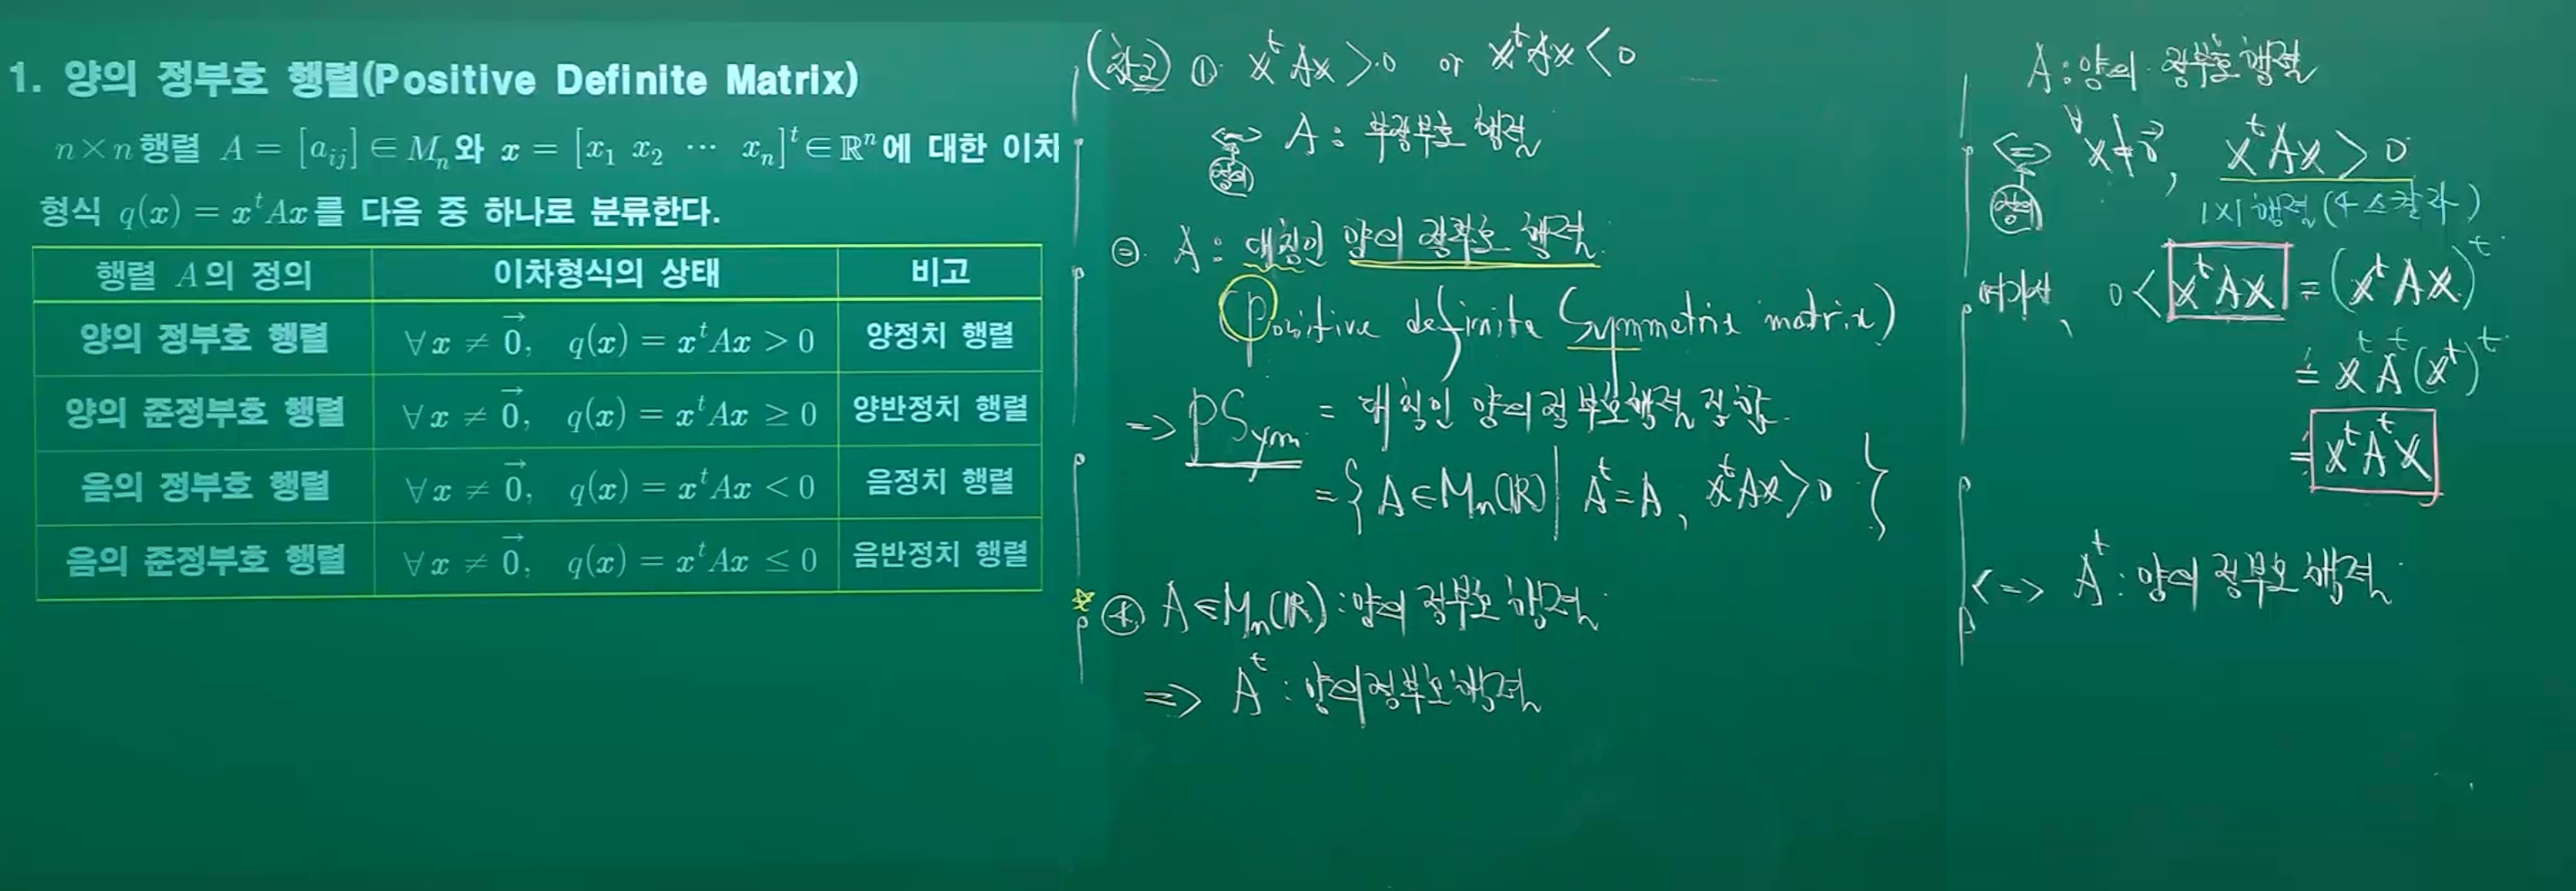 1. 양의 정부호 행렬(Positive Definite Matrix)
n×n 행렬 A = [a_{ij}] ∈ M_n와 x = [x_1 x_2 ⋯ x_n]^t ∈ ℝ^n에 대한 이차
형식 q(x) = x^t Ax를 다음 중 하나로 분류한다.
행렬 A의 정의 이차형식의 상태 비고
양의 정부호 행렬 ∀x ≠ \vec{0}, q(x) = x^t Ax > 0 양정치 행렬
양의 준정부호 행렬 ∀x ≠ \vec{0}, q(x) = x^t Ax ≥ 0 양반정치 행렬
음의 정부호 행렬 ∀x ≠ \vec{0}, q(x) = x^t Ax < 0 음정치 행렬
음의 준정부호 행렬 ∀x ≠ \vec{0}, q(x) = x^t Ax ≤ 0 음반정치 행렬
(참고) ① x^t Ax > 0 or x^t Ax < 0
<=> A : 부정부호 행렬
정의
② A : 대칭인 양의 정부호 행렬
(Positive definite Symmetric matrix)
=> PSym = 대칭인 양의 정부호 행렬 집합
= { A ∈ M_n(ℝ) | A^t = A, x^t Ax > 0 }
④ A ∈ M_n(ℝ) : 양의 정부호 행렬
=> A^t : 양의 정부호 행렬
A : 양의 정부호 행렬
<=> ∀x ≠ \vec{0}, x^t Ax > 0
정의
1×1 행렬 (스칼라)
여기서, 0 < x^t Ax = (x^t Ax)^t
= x^t A^t (x^t)^t
= x^t A^t x
<=> A^t : 양의 정부호 행렬